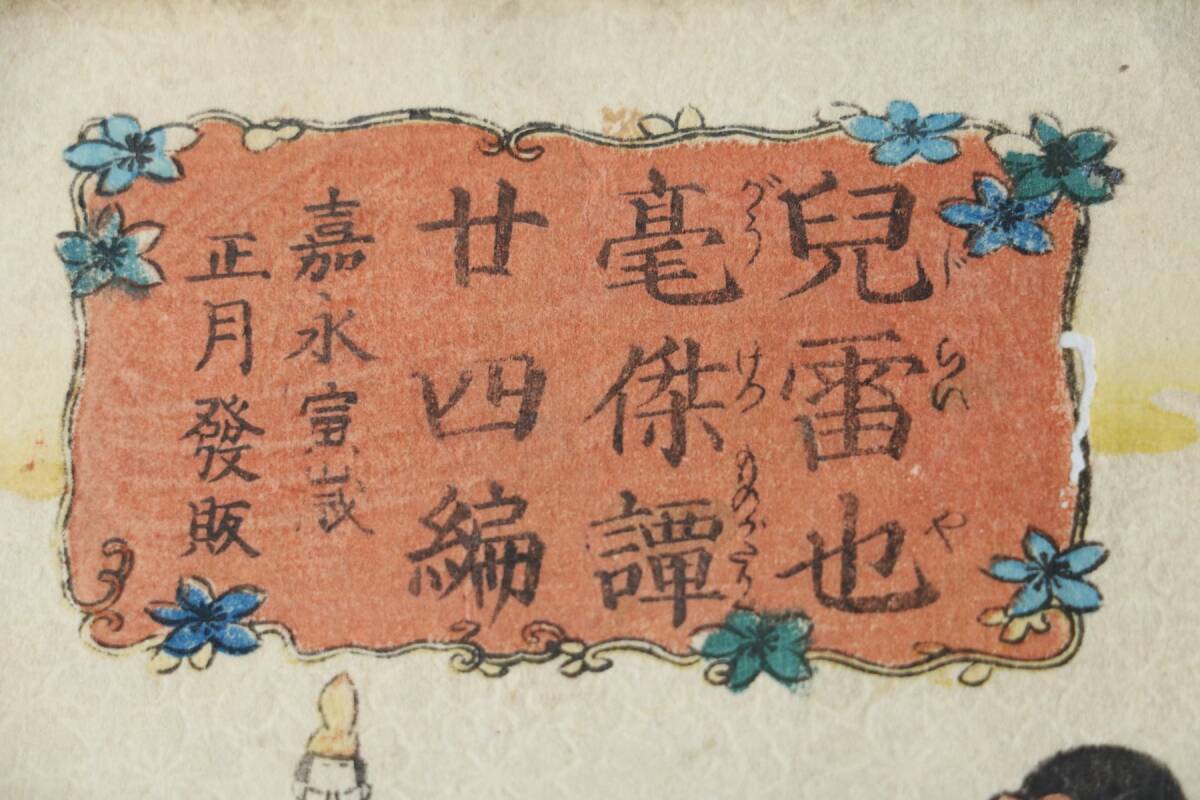 兒雷也
じらいや
豪傑譚
がうけつものがたり
廿四編
嘉永寅歳
正月發販